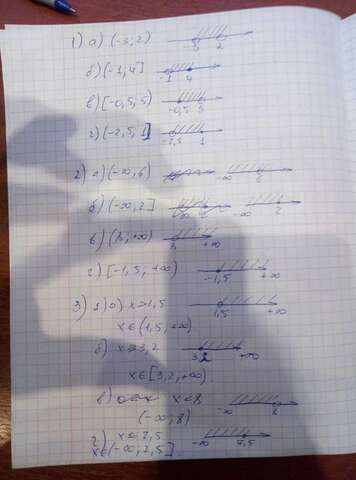 1) а) (-3; 2) -3 2
б) (-1; 4] -1 4
в) [-0,5; 5) -0,5 5
г) (-2,5; 1] -2,5 1
2) а) (-∞; 6) -∞ 6
б) (-∞; 2] -∞ 2
в) (3; +∞) 3 +∞
г) [-1,5; +∞) -1,5 +∞
3) 1) а) x>1,5 1,5 +∞
x∈(1,5; +∞)
б) x≥3,2 3,2 +∞
x∈[3,2; +∞)
в) x<8 -∞ 8
(-∞; 8)
г) x≤2,5 -∞ 2,5
x∈(-∞; 2,5]